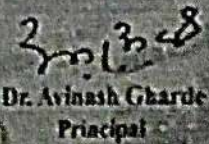 Dr. Avinash Gharde
Principal